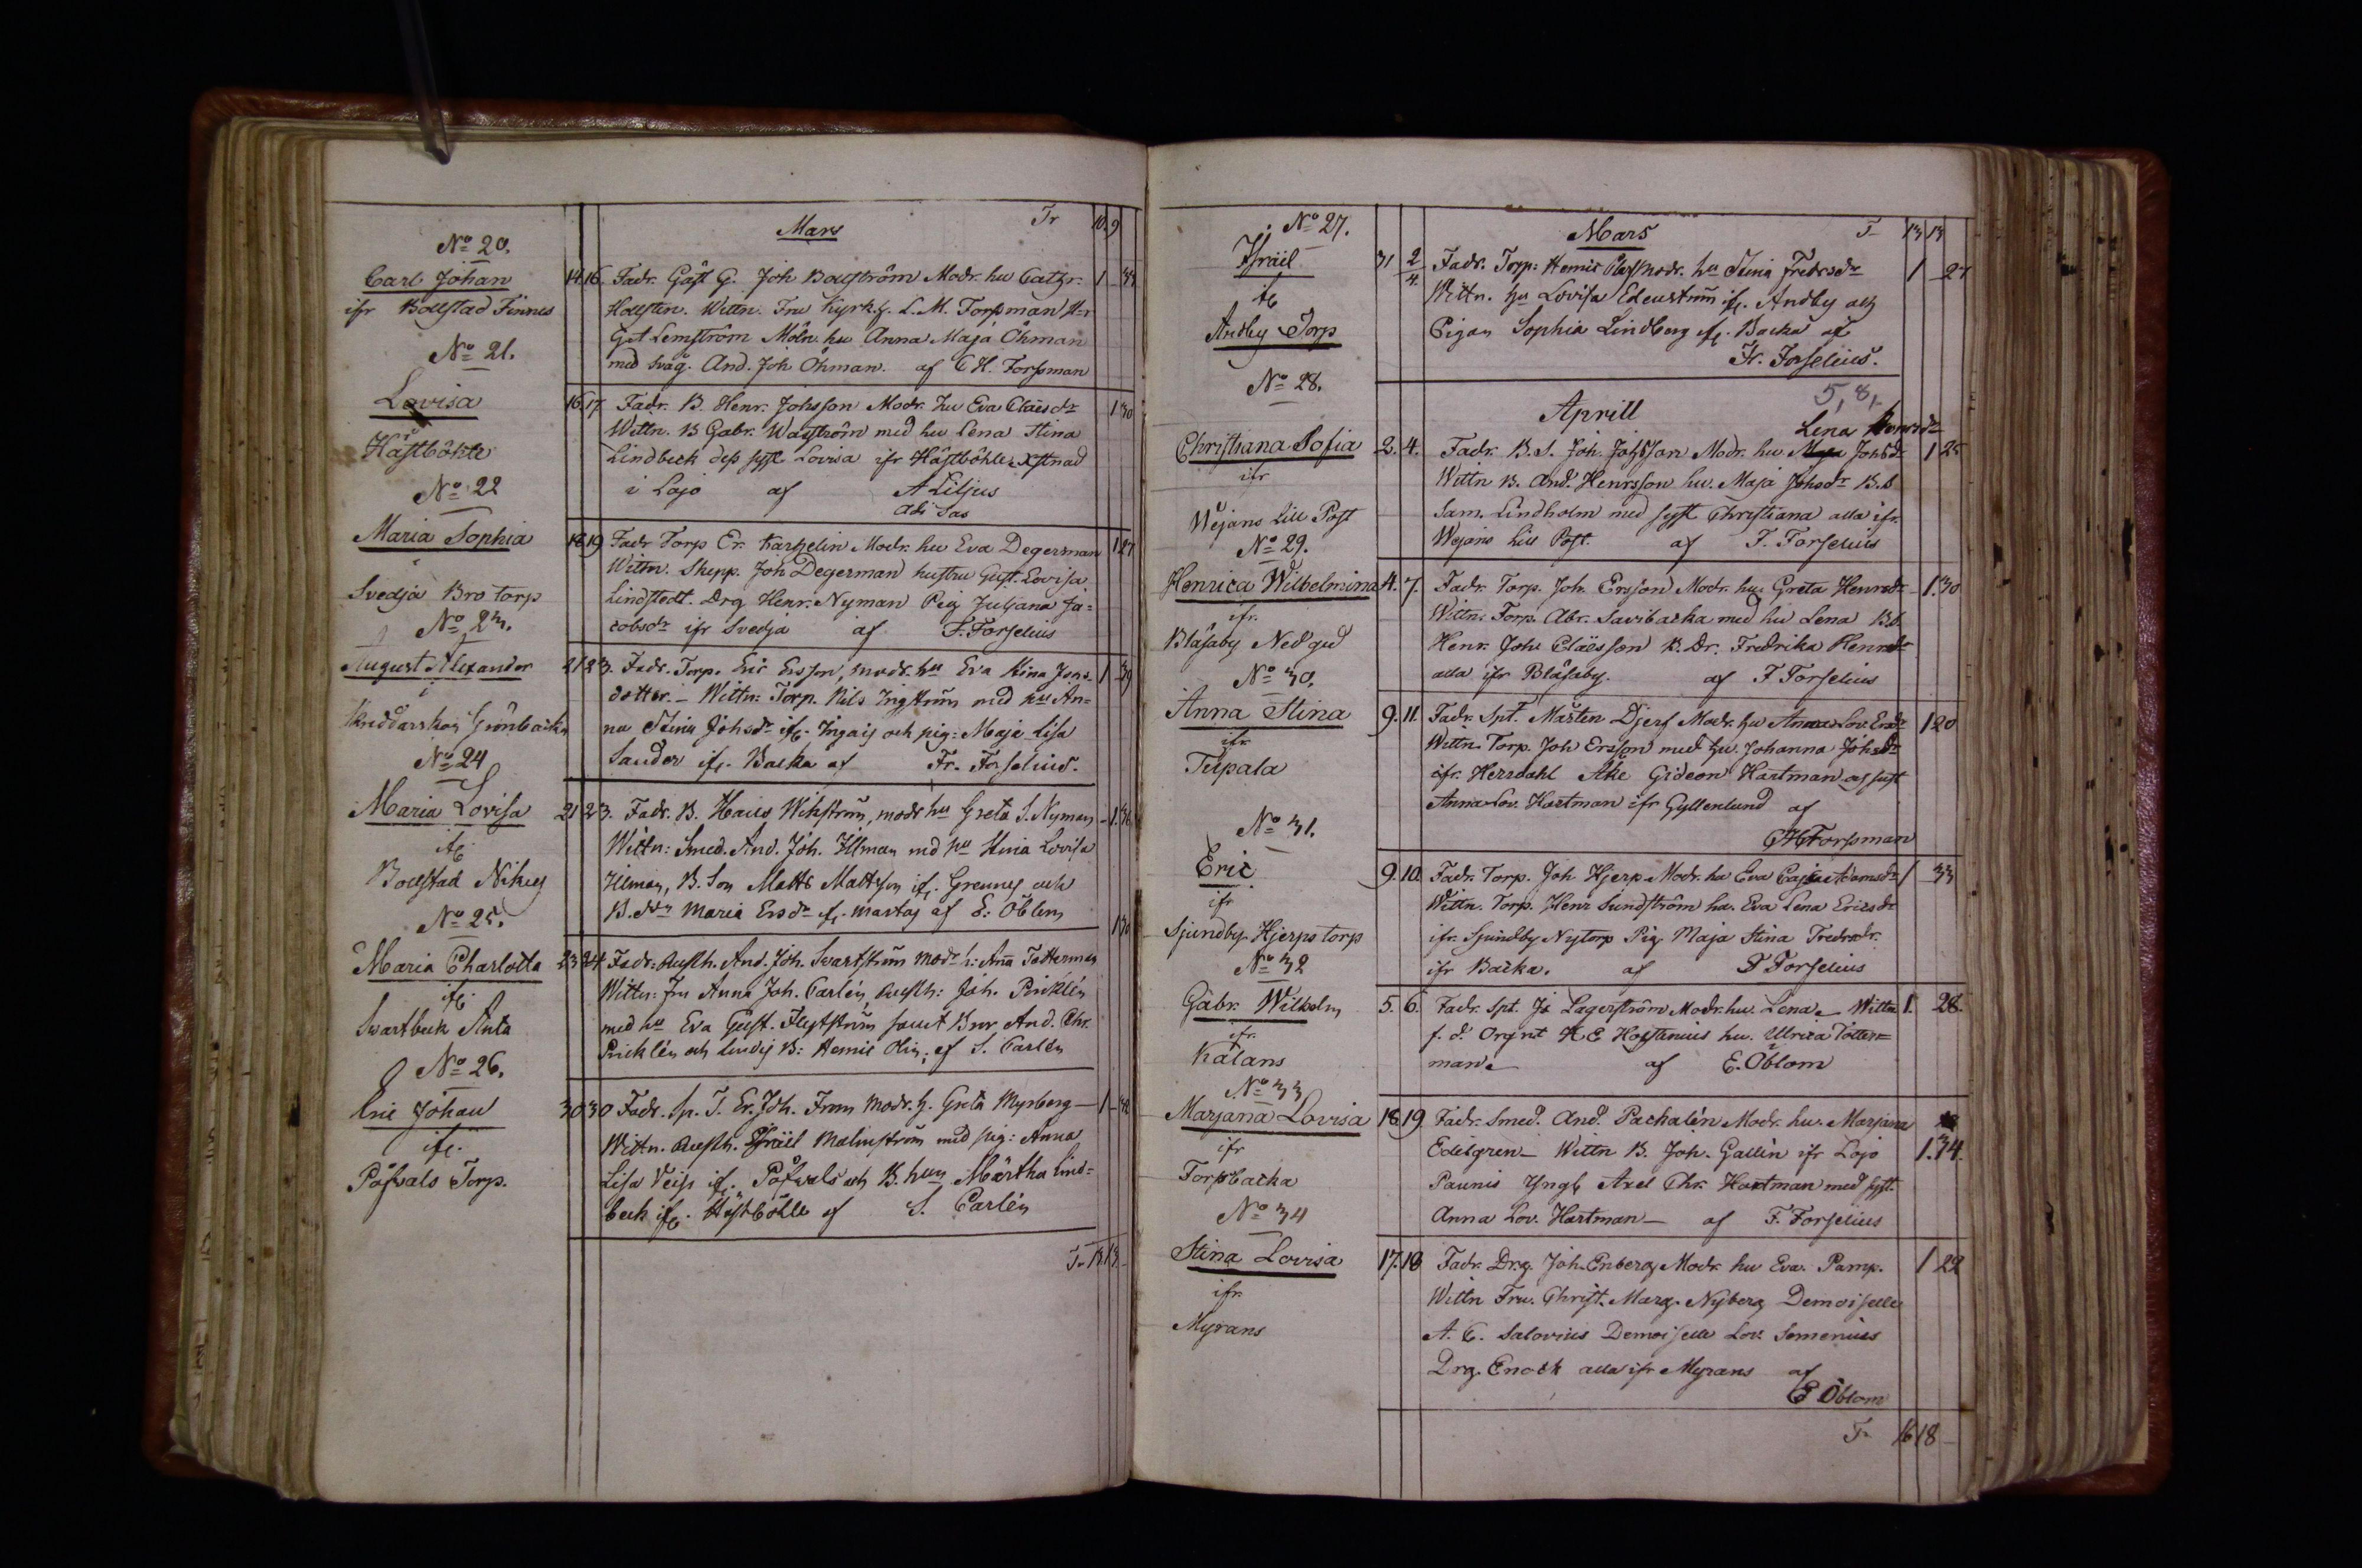 Mars Tr 10. 9
No 20.
Carl Johan
ifr Bollstad Finnes
14. 16. Fadr. Gäst G. Joh Bollström Modr. hu Cathr. 1
Hollsten. Wittn. Fru Kyrk.h. L. M. Forssman H-r
Gst Lemström Möln. hu Anna Maja Öhman
med Svåg. And. Joh Öhman. af C H. Forssman
No 21.
Lovisa
Hästböhle
16. 17. Fadr. B. Henr. Johsson Modr. hu Eva Claesdr 1 30
Wittn. B Gabr. Waström med hu Lena Stina
Lindbeck dess syst Lovisa ifr Hästböhle
i Lojo af A Liljus
No 22
Maria Sophia
Svedja Bro torp
18 19 Fadr Torp Er. Karhelin Modr. hu Eva Degerman 1 27
Wittn. Skepp. Joh Degerman hustru Gust. Lovisa
Lindstedt. Drg Henr. Nyman Pig Juliana Ja=
cobsdr ifr Svedja af F. Forselius
No 23.
August Alexander
i
Skreddarskog Grönbacka
21 23. Fadr. Torp. Eric Ersson, modr. hu Eva Stina Jans- 1 39
dotter. – Wittn: Torp. Nils Ingström med hu An=
na Stina Johsdr ifr. Ingais och pig: Maja Lisa
Sander ifr. Backa af Fr. Forselius.
No 24
Maria Lovisa
ifr
Bollstad Nikus
21 23. Fadr. B. Wikström, modr hu Greta S. Nyman 1. 36
Wittn: Smed. And. Joh. Ilman med hu Stina Lovisa
Ilman, B. Son Matts Mattsson ifr. Grenns och
B. dr Maria Ersdr ifr. af E: Öblom
No 25.
Maria Charlotta
ifr.
Svartbeck Anta
23 24 Fadr: And. Joh. Svartström modr h: Anna Totterman 1 30
Wittn: Fru Anna Joh. Carlén Joh. Pricklén
med hu Eva Gust. Flytström samt And. Chr.
Pricklén och B: Olin; af S. Carlén
No 26.
Eric Johan
ifr.
Påfvals Torp.
30 30 Fadr. Sp. T. Er. Joh. From modr. h. Greta Myrberg – 1
Wittn. Israël Malmström med pig: Anna
Lisa ifr. Påfvals och B. hun Märtha Lind=
beck ifr. Hästböhle af S. Carlén
Tr 13 13
No 27.
Mars Tr 13 13
Israël
ifr
Andby Torp
31 2/4. Fadr. Torp: modr. hu Stina Fredrsdr 1 27
Wittn. hu Lovisa Edenström ifr. Andby och
Pigan Sophia Lindberg ifr. Backa af
Fr. Forselius.
No 28.
Aprill
5, 8,
Lena
Christiana Sofia
ifr
Wejans Lill Post
2. 4. Fadr. B. S. Joh. Johsson Modr. hu Johsdr 1 25
Wittn B. And. Henrsson hu. Maja Johsdr B. S
Sam. Lindholm med syst Christiana alla ifr.
Wejans Lill Post. af F. Forselius
No 29.
Henrica Wilhelmina
ifr.
Blåsaby Nedgrd
4. 7. Fadr. Torp. Joh. Ersson Modr. hu. Greta Henrsdr 1. 30
Wittn. Torp. Abr. Savibacka med hu Lena B.S.
Henr. Joh Claesson B. Dr. Fredrika Henrsdr
alla ifr Blåsaby. af F Forselius
No 30.
Anna Stina
ifr
Tupala
9. 11. Fadr. Spt. Mårten Djerf Modr. hu Anna Lov. Ersdr 1 20
Wittn. Torp. Joh Ersson med hu. Johanna Johsdr
ifr. Herrdahl Åke Gideon Hartman syst
Anna Lov. Hartman ifr Gyllenlund af
C H Forssman
No 31.
Eric
ifr
Sjundby Hjerps torp
9. 10. Fadr. Torp. Joh Hjerp Modr. hu Eva Caisa Adamsdr 1 33
Wittn. Torp. Henr Sundström hu. Eva Lena Ericsdr
ifr. Sjundby Nytorp Pig Maja Stina Fredrsdr.
ifr Backa. af F Forselius
No 32
Gabr. Wilhelm
ifr.
Kålans
5. 6. Fadr. Spt. Jo Lagerström Modr. hu. Lena – Wittn 1. 28.
f. d. Orgnt H E Hoffrenius hu. Ulrica Totter=
man af E. Öblom
No 33
Marjana Lovisa
ifr
Torpbacka
18. 19. Fadr. Smed. And. Pachalén Modr. hu. Marjana
Edelgren – Wittn B. Joh. Gallén ifr Lojo 1. 34.
Paunis Yngl Axel Chr. Hartman med syst.
Anna Lov. Hartman – af F. Forselius
No 34
Stina Lovisa
ifr.
Myrans
17. 18 Fadr. Drg. Joh. Enberg Modr. hu Eva. Pamp. 1 22
Wittn Fru. Christ. Marg. Nyberg Demoiselle
A. C. Salovius Demoiselle Lov.
Drg. Enock alla ifr Myrans af
E Öblom
Tr 16 18